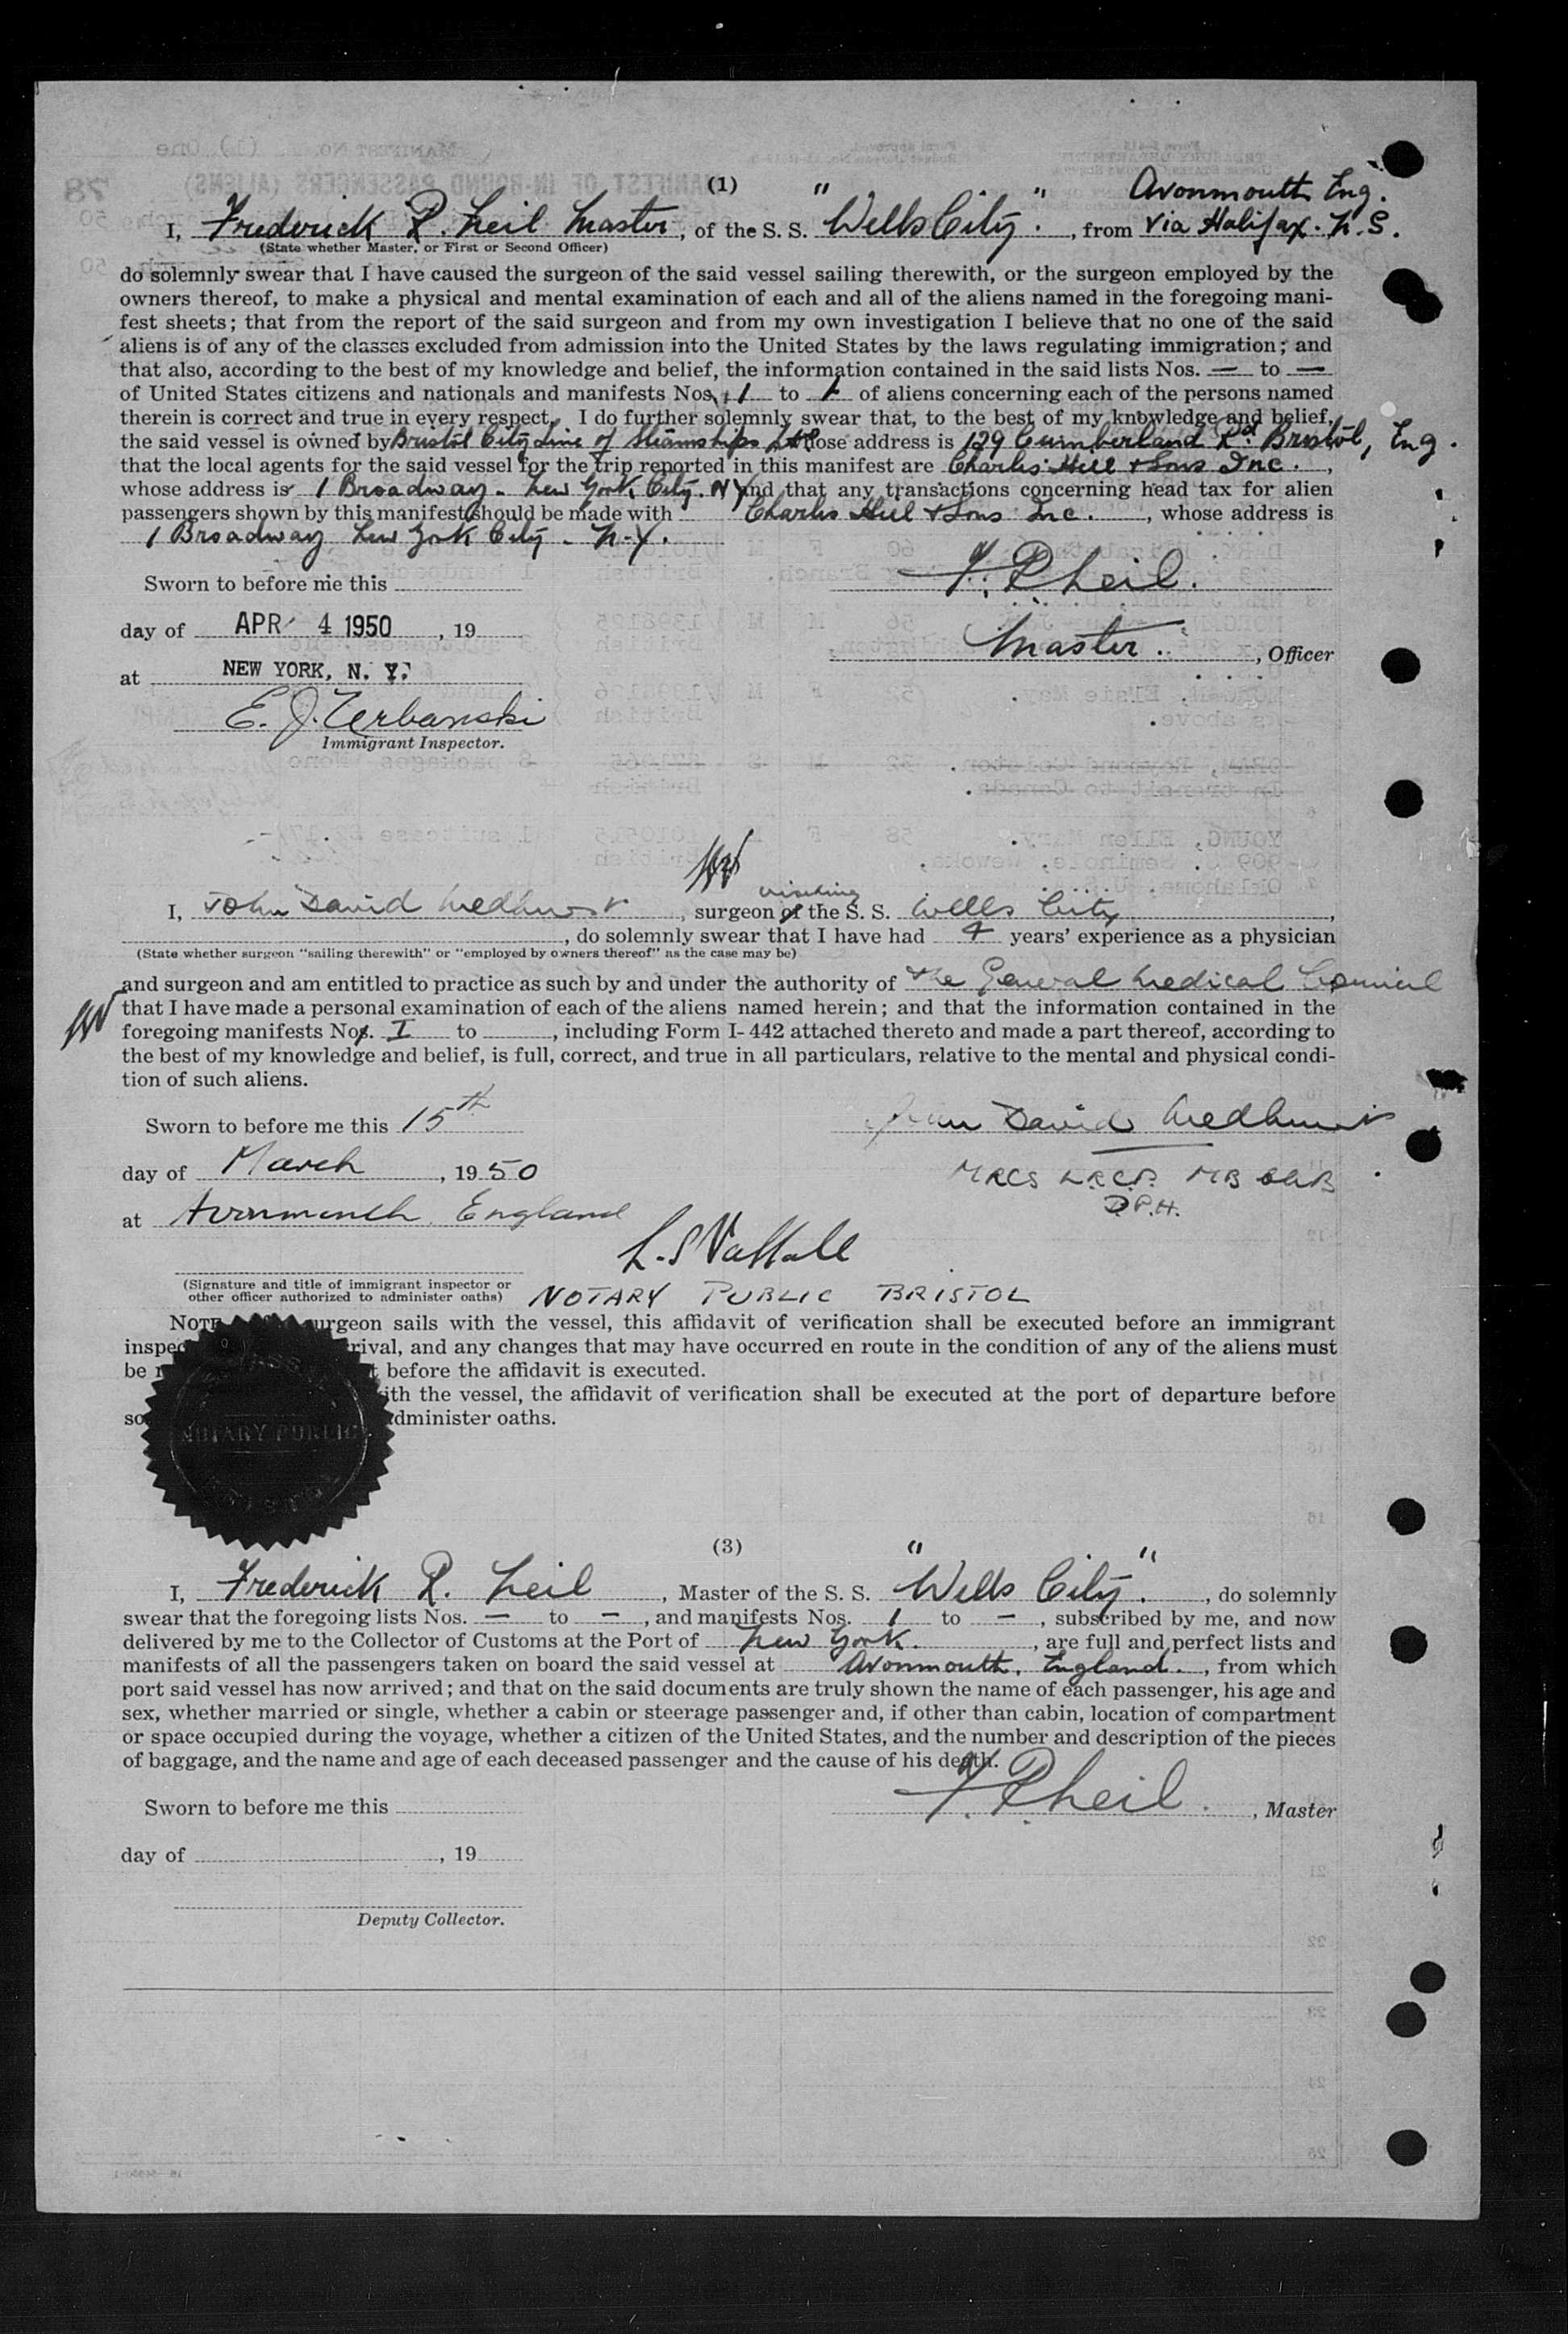 (1)
Avonmouth Eng.
I, Frederick R. Neil Master, of the S. S. "Wells City." , from via Halifax. N.S.
(State whether Master, or First or Second Officer)
do solemnly swear that I have caused the surgeon of the said vessel sailing therewith, or the surgeon employed by the
owners thereof, to make a physical and mental examination of each and all of the aliens named in the foregoing mani-
fest sheets; that from the report of the said surgeon and from my own investigation I believe that no one of the said
aliens is of any of the classes excluded from admission into the United States by the laws regulating immigration; and
that also, according to the best of my knowledge and belief, the information contained in the said lists Nos. — to —
of United States citizens and nationals and manifests Nos. 1 to 1 of aliens concerning each of the persons named
therein is correct and true in every respect. I do further solemnly swear that, to the best of my knowledge and belief,
the said vessel is owned by Bristol City Line of Steamships Ltd whose address is 129 Cumberland Rd. Bristol, Eng.
that the local agents for the said vessel for the trip reported in this manifest are Charles Hill & Sons Inc. ,
whose address is 1 Broadway. New York City. NY and that any transactions concerning head tax for alien
passengers shown by this manifest should be made with Charles Hill & Sons Inc. , whose address is
1 Broadway New York City. N.Y.
Sworn to before me this
F. R Neil.
day of APR 4 1950 , 19
Master. , Officer
at NEW YORK, N. Y.
E. J. Urbanski
Immigrant Inspector.
visiting
I, John David Medhurst , surgeon of the S. S. Wells City ,
, do solemnly swear that I have had 4 years' experience as a physician
(State whether surgeon "sailing therewith" or "employed by owners thereof" as the case may be)
and surgeon and am entitled to practice as such by and under the authority of the General Medical Council
that I have made a personal examination of each of the aliens named herein; and that the information contained in the
foregoing manifests Nos. I to , including Form I-442 attached thereto and made a part thereof, according to
the best of my knowledge and belief, is full, correct, and true in all particulars, relative to the mental and physical condi-
tion of such aliens.
Sworn to before me this 15th
John David Medhurst
day of March , 1950
MRCS LRCP. MB ChB
D.P.H.
at Avonmouth, England
(Signature and title of immigrant inspector or
other officer authorized to administer oaths) NOTARY PUBLIC BRISTOL
NOTE urgeon sails with the vessel, this affidavit of verification shall be executed before an immigrant
inspec rival, and any changes that may have occurred en route in the condition of any of the aliens must
be before the affidavit is executed.
ith the vessel, the affidavit of verification shall be executed at the port of departure before
so dminister oaths.
NOTARY PUBLIC
(3)
I, Frederick R. Neil , Master of the S. S. "Wells City." , do solemnly
swear that the foregoing lists Nos. — to — , and manifests Nos. 1 to — , subscribed by me, and now
delivered by me to the Collector of Customs at the Port of New York. , are full and perfect lists and
manifests of all the passengers taken on board the said vessel at Avonmouth, England. , from which
port said vessel has now arrived; and that on the said documents are truly shown the name of each passenger, his age and
sex, whether married or single, whether a cabin or steerage passenger and, if other than cabin, location of compartment
or space occupied during the voyage, whether a citizen of the United States, and the number and description of the pieces
of baggage, and the name and age of each deceased passenger and the cause of his death.
Sworn to before me this
F. R Neil. , Master
day of , 19
Deputy Collector.